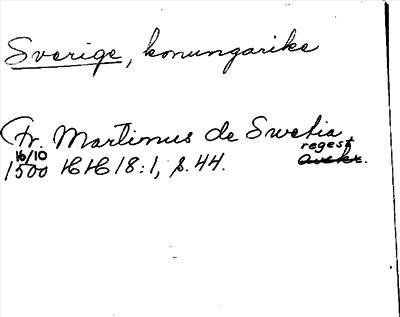 Sverige, konungarike
Fr. Martinus de Swetia
16/10 regest
1500 HH 18:1, s. 44. Avskr.